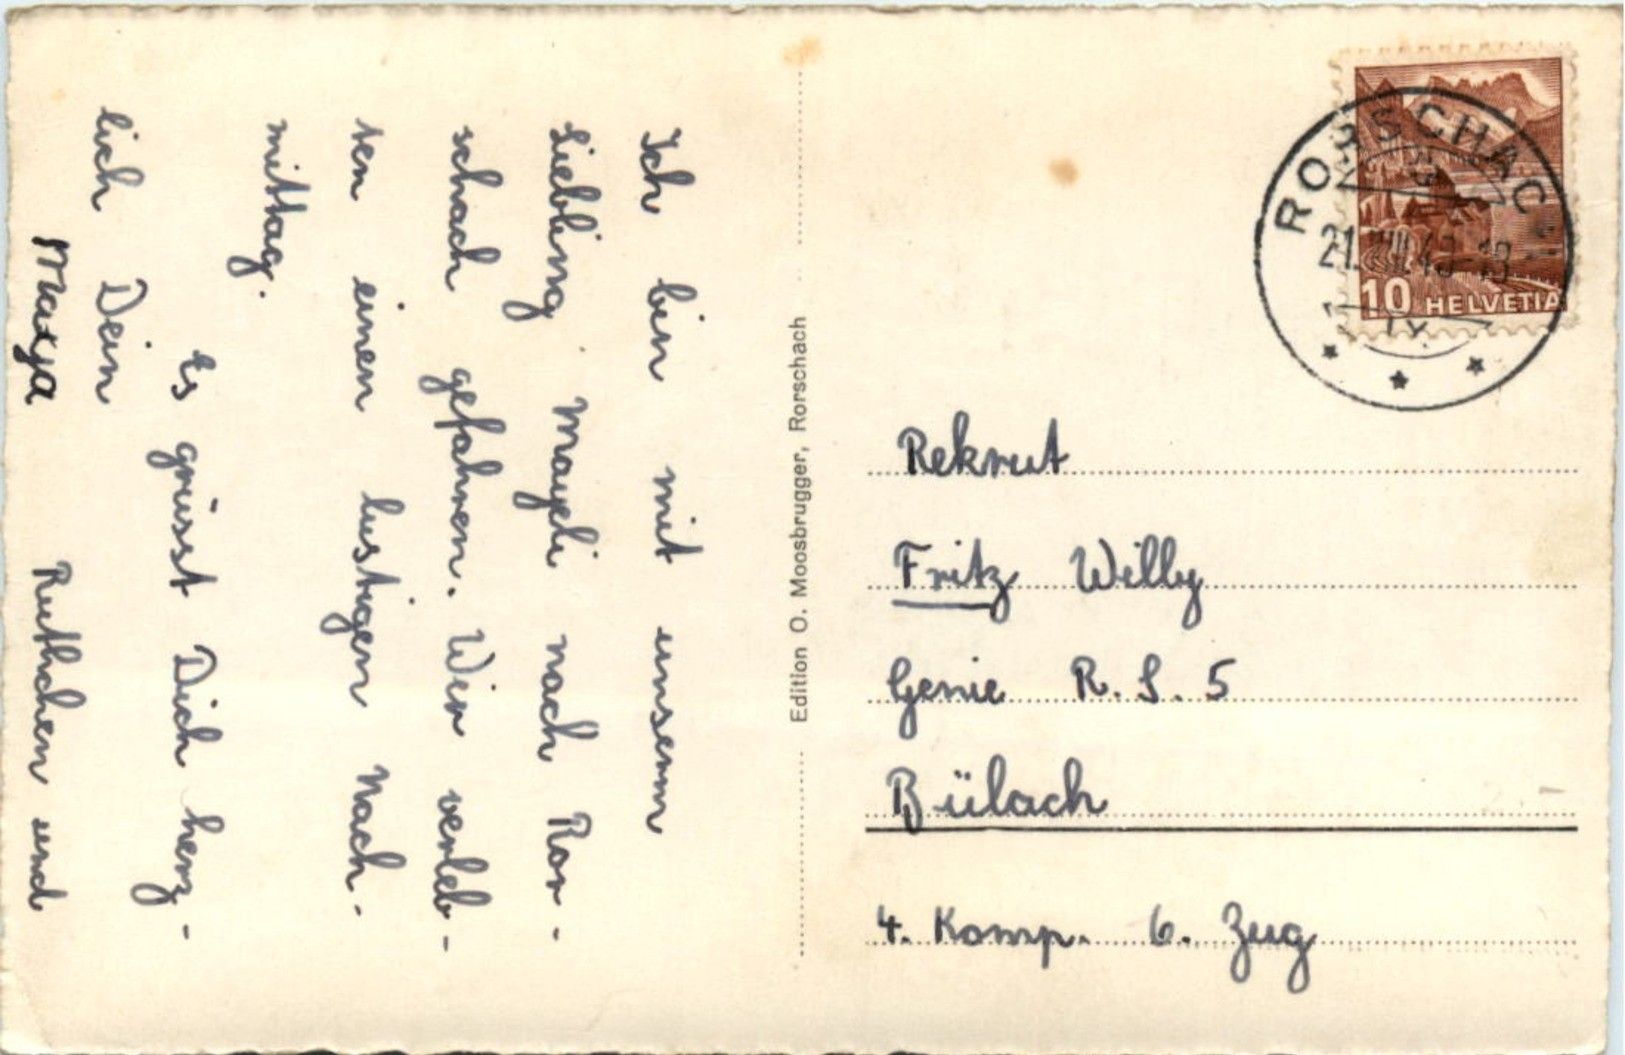 Ich bin mit unserm
Liebling Mayeli nach Ror-
schach gefahren. Wir verleb-
ten einen lustigen Nach-
mittag.
Es grüsst Dich herz-
lich Dein
Ruthchen und
Maya
Edition O. Moosbrugger, Rorschach
RORSCHACH
10 HELVETIA
Rekrut
Fritz Willy
Genie R. S. 5
Bülach
4. Komp. 6. Zug